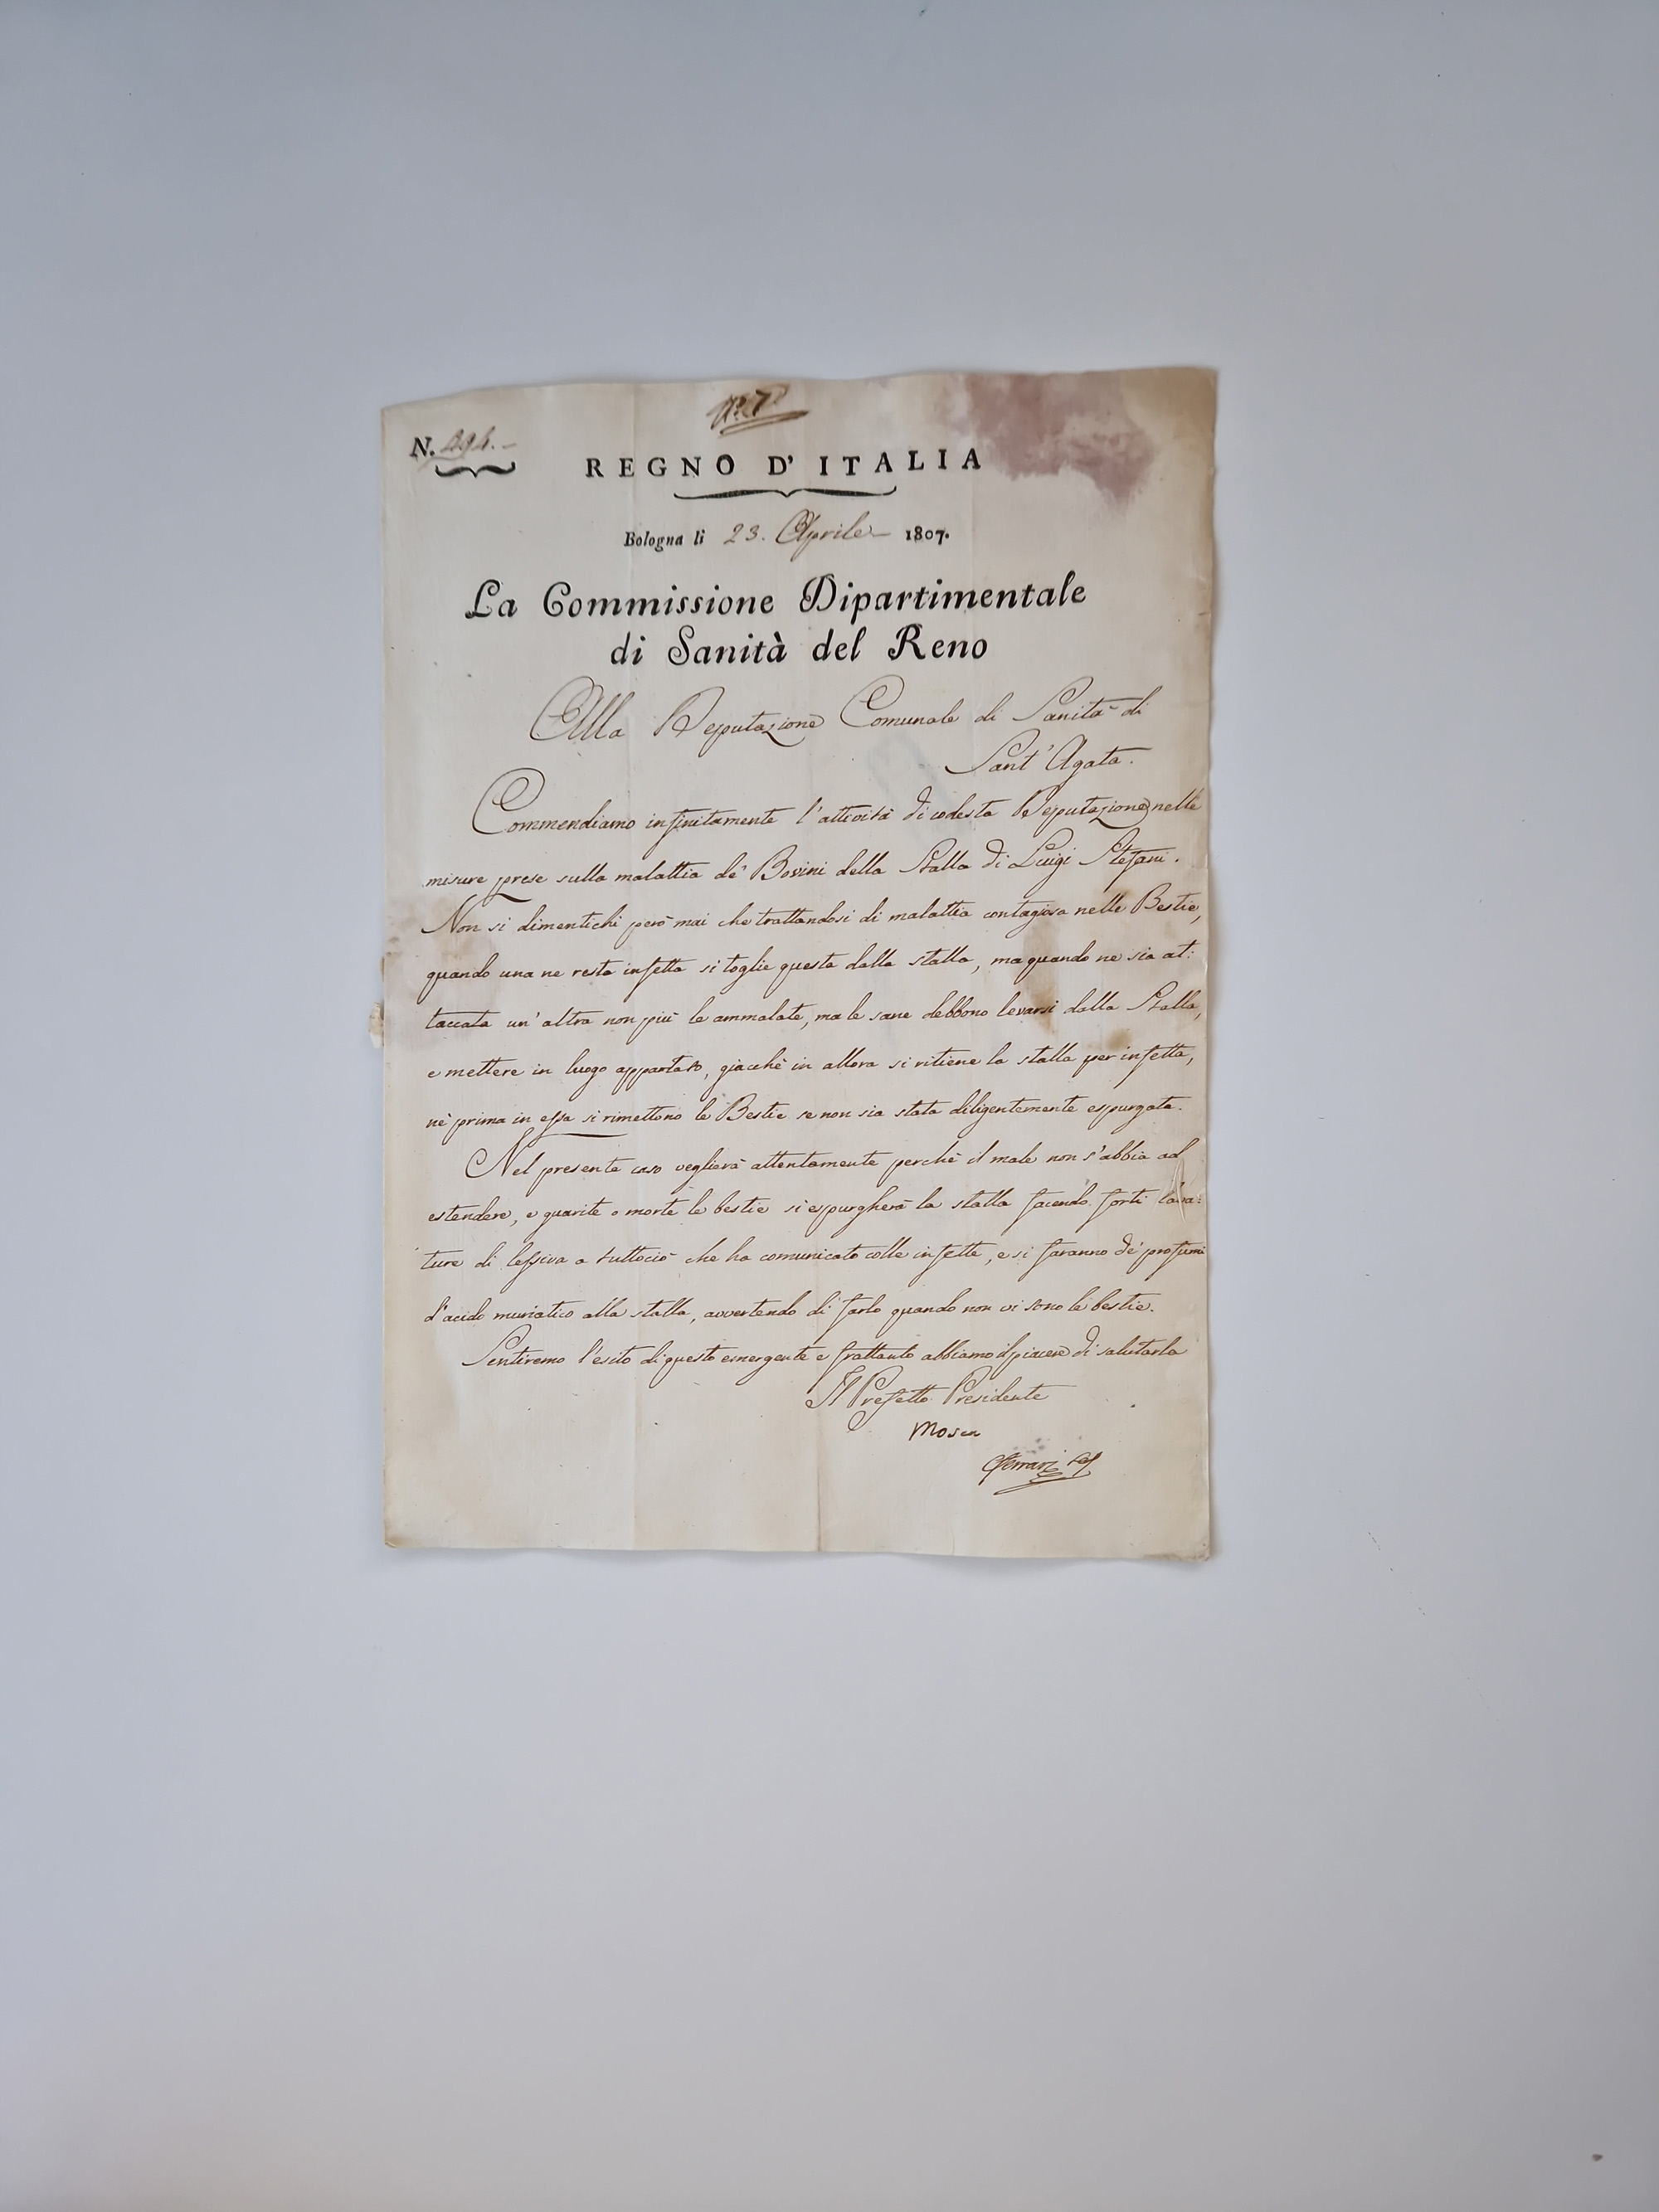 N.° 7.°
N. 494.
REGNO D' ITALIA
Bologna li 23. Aprile 1807.
La Commissione Dipartimentale
di Sanità del Reno
Alla Deputazione Comunale di Sanità di
Sant'Agata.
Commendiamo infinitamente l'attività di codesta Deputazione nelle
misure prese sulla malattia de' Bovini della Stalla di Luigi Stefani.
Non si dimentichi però mai che trattandosi di malattia contagiosa nelle Bestie,
quando una ne resta infetta si toglie questa dalla stalla, ma quando ne sia at:
taccata un'altra non più le ammalate, ma le sane debbono levarsi dalla Stalla,
e mettere in luogo appartato, giacchè in allora si ritiene la stalla per infetta,
nè prima in essa si rimettono le Bestie se non sia stata diligentemente espurgata.
Nel presente caso veglierà attentamente perchè il male non s'abbia ad
estendere, e guarite o morte le bestie si espurgherà la stalla facendo forti lava:
ture di lessiva a tuttociò che ha comunicato colle infette, e si faranno de' profumi
d'acido muriatico alla stalla, avvertendo di farlo quando non vi sono le bestie.
Sentiremo l'esito di questo emergente e frattanto abbiamo il piacere di salutarla
Il Prefetto Presidente
Mosca
Ferrari